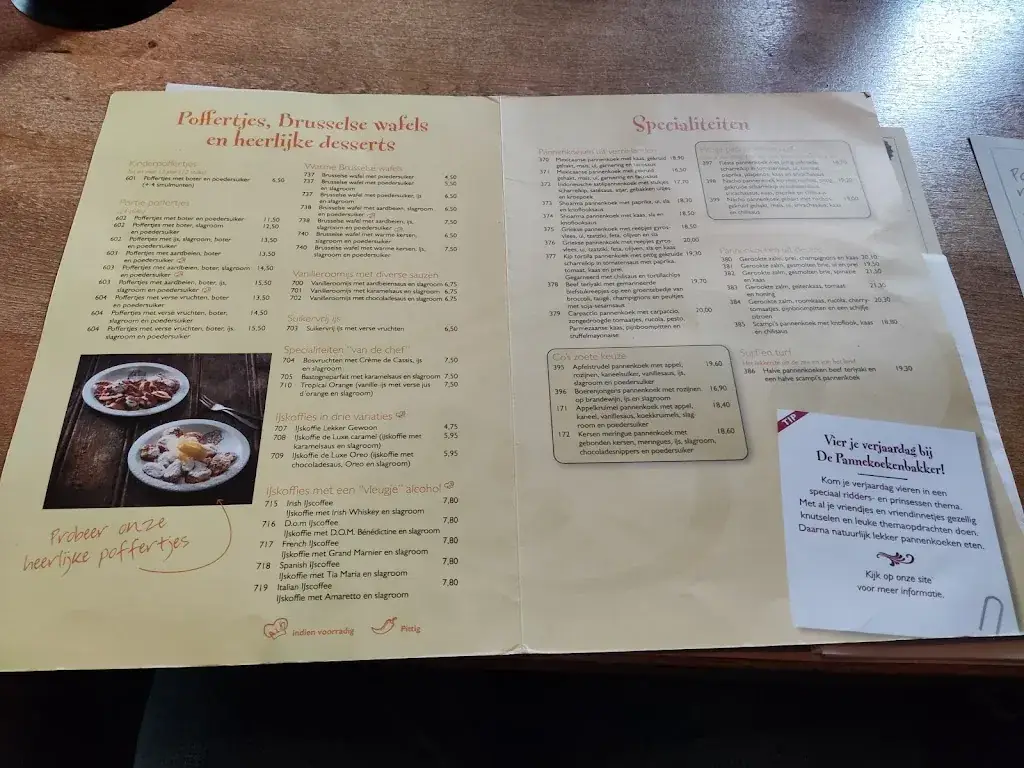 Poffertjes, Brusselse wafels
en heerlijke desserts
Kinderpoffertjes
601 Poffertjes met boter en poedersuiker 6,50
Portie poffertjes
602 Poffertjes met boter en poedersuiker 11,50
602 Poffertjes met boter, slagroom 12,50
en poedersuiker
602 Poffertjes met ijs, slagroom, boter 13,50
en poedersuiker
603 Poffertjes met aardbeien, boter 13,50
en poedersuiker
603 Poffertjes met aardbeien, boter, slagroom 14,50
en poedersuiker
603 Poffertjes met aardbeien, boter, ijs, 15,50
slagroom en poedersuiker
604 Poffertjes met verse vruchten, boter 13,50
en poedersuiker
604 Poffertjes met verse vruchten, boter, 14,50
slagroom en poedersuiker
604 Poffertjes met verse vruchten, boter, ijs, 15,50
slagroom en poedersuiker
Probeer onze
heerlijke poffertjes
Warme Brusselse wafels
737 Brusselse wafel met poedersuiker 4,50
737 Brusselse wafel met poedersuiker 5,50
en slagroom
737 Brusselse wafel met poedersuiker, ijs 6,50
en slagroom
738 Brusselse wafel met aardbeien, slagroom 6,50
en poedersuiker
738 Brusselse wafel met aardbeien, ijs, 7,50
slagroom en poedersuiker
740 Brusselse wafel met warme kersen, 6,50
slagroom en poedersuiker
740 Brusselse wafel met warme kersen, ijs, 7,50
slagroom en poedersuiker
Vanilleroomijs met diverse sauzen
700 Vanilleroomijs met aardbeiensaus en slagroom 6,75
701 Vanilleroomijs met karamelsaus en slagroom 6,75
702 Vanilleroomijs met chocoladesaus en slagroom 6,75
Suikervrij ijs
703 Suikervrij ijs met verse vruchten 6,50
Specialiteiten "van de chef"
704 Bosvruchten met Crème de Cassis, ijs 7,50
en slagroom
705 Bastogneparfait met karamelsaus en slagroom 7,50
710 Tropical Orange (vanille-ijs met verse jus 7,50
d'orange en slagroom)
IJskoffies in drie variaties
707 IJskoffie Lekker Gewoon 4,75
708 IJskoffie de Luxe caramel (ijskoffie met 5,95
karamelsaus en slagroom)
709 IJskoffie de Luxe Oreo (ijskoffie met 5,95
chocoladesaus, Oreo en slagroom)
IJskoffies met een "vleugje" alcohol
715 Irish IJscoffee 7,80
IJskoffie met Irish Whiskey en slagroom
716 D.o.m IJscoffee 7,80
IJskoffie met D.O.M. Bénédictine en slagroom
717 French IJscoffee 7,80
IJskoffie met Grand Marnier en slagroom
718 Spanish IJscoffee 7,80
IJskoffie met Tia Maria en slagroom
719 Italian IJscoffee 7,80
IJskoffie met Amaretto en slagroom
indien voorradig
Pittig
Specialiteiten
370 Mexicaanse pannenkoek met kaas, gekruid 18,90
373 Shoarma pannenkoek met paprika, ui, sla 18,30
en knoflooksaus
374 Shoarma pannenkoek met kaas, sla en 18,50
knoflooksaus
375 Griekse pannenkoek met reepjes gyros- 18,50
vlees, ui, tzatziki, feta, olijven en sla
376 Griekse pannenkoek met reepjes gyros- 20,00
vlees, ui, tzatziki, feta, olijven, sla en kaas
377 Kip tortilla pannenkoek met pittig gekruide 19,30
scharrelkip in tomatensaus met paprika,
tomaat, kaas en prei.
Gegarneerd met chilisaus en tortillachips
378 Beef teriyaki met gemarineerde 19,70
biefstukreepjes op een groentebedje van
broccoli, taugé, champignons en peultjes
met soja-sesamsaus
379 Carpaccio pannenkoek met carpaccio, 20,00
zongedroogde tomaatjes, rucola, pesto,
Parmezaanse kaas, pijnboompitten en
truffelmayonaise
Co's zoete keuze
395 Apfelstrudel pannenkoek met appel, 19,60
rozijnen, kaneelsuiker, vanillesaus, ijs,
slagroom en poedersuiker
396 Boerenjongens pannenkoek met rozijnen 16,90
op brandewijn, ijs en slagroom
171 Appelkruimel pannenkoek met appel, 18,40
kaneel, vanillesaus, koekkruimels, slag-
room en poedersuiker
172 Kersen meringue pannenkoek met 18,60
gebonden kersen, meringues, ijs, slagroom,
chocoladesnippers en poedersuiker
380 Gerookte zalm, prei, champignons en kaas 20,10
381 Gerookte zalm, gesmolten brie, ui en prei 19,50
382 Gerookte zalm, gesmolten brie, spinazie 21,50
383 Gerookte zalm, geitenkaas, tomaat 21,30
en honing
384 Gerookte zalm, roomkaas, rucola, cherry- 20,30
tomaatjes, pijnboompitten en een schijfje
citroen
385 Scampi's pannenkoek met knoflook, kaas 18,80
en chilisaus
Surf en turf
386 Halve pannenkoek beef teriyaki en 19,30
een halve scampi's pannenkoek
TIP
Vier je verjaardag bij
De Pannekoekenbakker!
Kom je verjaardag vieren in een
speciaal ridders- en prinsessen thema.
Met al je vriendjes en vriendinnetjes gezellig
knutselen en leuke themaopdrachten doen.
Daarna natuurlijk lekker pannenkoeken eten.
Kijk op onze site
voor meer informatie.